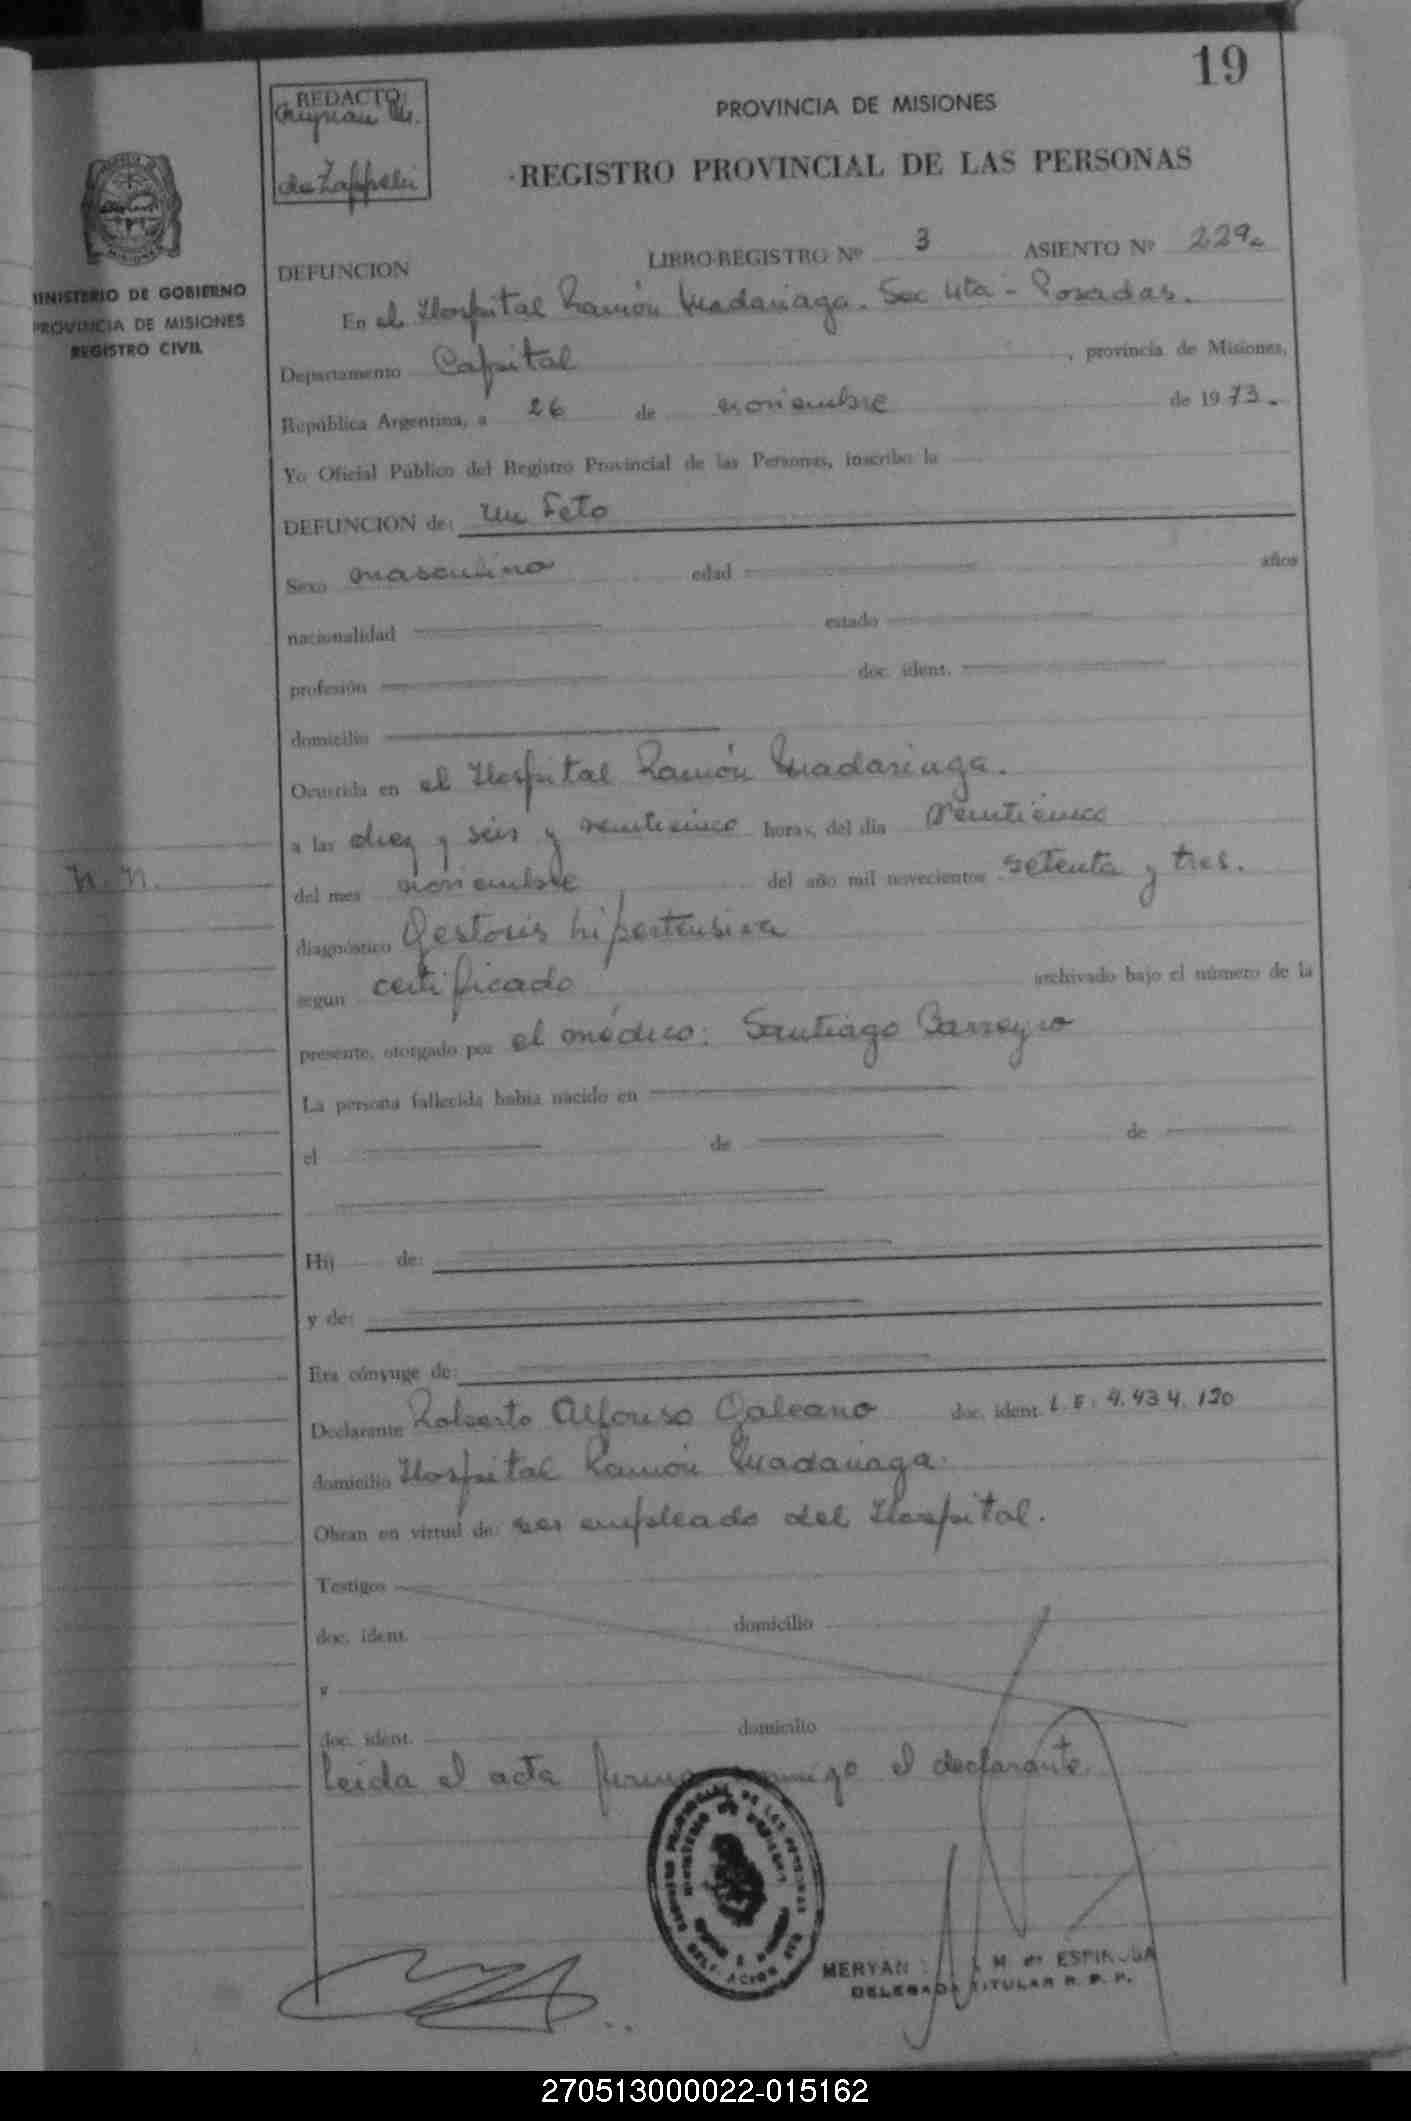 19
REDACTO:
de Zappelli
PROVINCIA DE MISIONES
REGISTRO PROVINCIAL DE LAS PERSONAS
MINISTERIO DE GOBIERNO
PROVINCIA DE MISIONES
REGISTRO CIVIL
DEFUNCION LIBRO-REGISTRO Nº 3 ASIENTO Nº 229
En el Hospital Ramón Madariaga. Sec 4ta - Posadas.
Departamento Capital, provincia de Misiones,
República Argentina, a 26 de noviembre de 1973.
Yo Oficial Público del Registro Provincial de las Personas, inscribo la
DEFUNCION de: un Feto
Sexo masculino edad años
nacionalidad estado
profesión doc. ident.
domicilio
Ocurrida en el Hospital Ramón Madariaga.
a las diez y seis y veinticinco horas, del día veinticinco
n.n.
del mes noviembre del año mil novecientos setenta y tres.
diagnóstico Gestosis hipertensiva
según certificado archivado bajo el número de la
presente, otorgado por el médico: Santiago Barreyro
La persona fallecida había nacido en
el de de
Hij de:
y de:
Era cónyuge de:
Declarante Roberto Alfonso Galeano doc. ident. L.E. 4.434.130
domicilio Hospital Ramón Madariaga.
Obran en virtud de ser empleado del Hospital.
Testigos
doc. ident. domicilio
y
doc. ident. domicilio
Leída el acta firma conmigo el declarante.
MERYAN M. de ESPINOSA
DELEGADA TITULAR R. P. P.
270513000022-015162